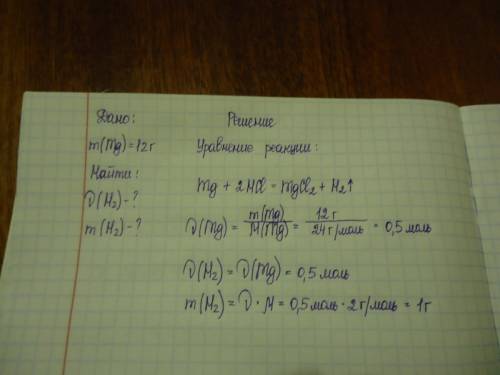 Дано:
m(Mg)=12г
Найти:
ν(H₂)-?
m(H₂)-?
Решение
Уравнение реакции:
Mg + 2HCl = MgCl₂ + H₂↑
ν(Mg) = m(Mg)/M(Mg) = 12 г/24 г/моль = 0,5 моль
ν(H₂) = ν(Mg) = 0,5 моль
m(H₂) = ν · M = 0,5 моль · 2 г/моль = 1г